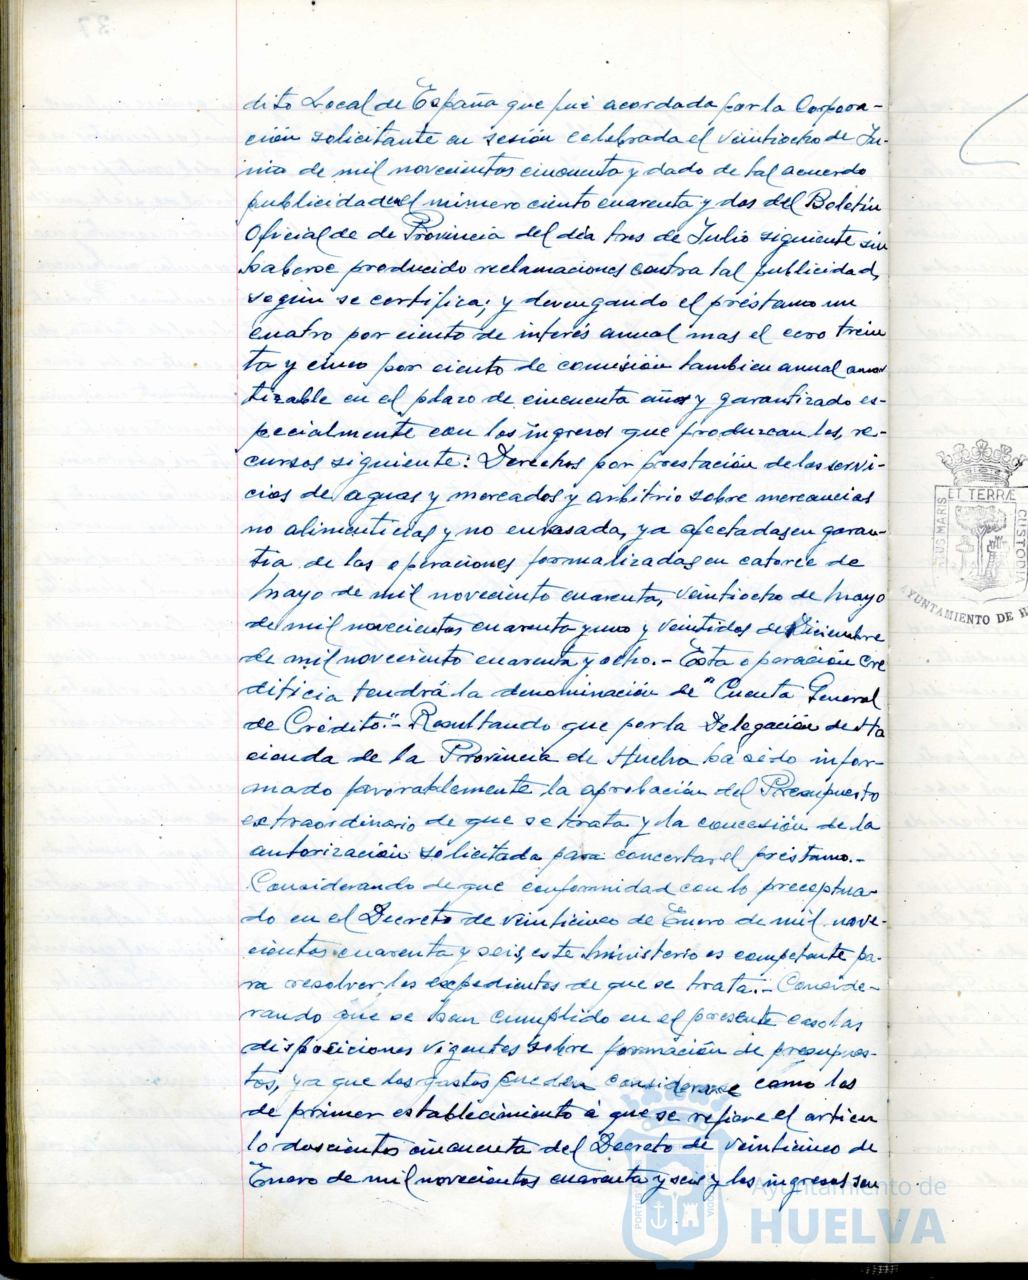 dito Local de España que fué acordada por la Corpora-
ción solicitante en sesión celebrada el veintiocho de Ju-
nio de mil novecientos cincuenta y dado de tal acuerdo
publicidad en el número ciento cuarenta y dos del Boletín
Oficial de de Provincia del día tres de Julio siguiente sin
haberse producido reclamaciones contra tal publicidad,
según se certifica; y devengando el préstamo un
cuatro por ciento de interés anual mas el cero trein
ta y cinco por ciento de comisión tambien anual amor
tizable en el plazo de cincuenta años y garantizado es-
pecialmente con los ingresos que produzcan los re-
cursos siguiente: Derechos por prestación de los servi-
cios de aguas y mercados y arbitrio sobre mercancias
no alimenticias y no envasada, ya afectadas en garan-
tia de las operaciones formalizadas en catorce de
Mayo de mil novecientos cuarenta, veintiocho de Mayo
de mil novecientos cuarenta y uno y veintidos de Diciembre
de mil novecientos cuarenta y ocho.- Esta operación cre
diticia tendrá la denominación de "Cuenta General
de Crédito".- Resultando que por la Delegación de Ha
cienda de la Provincia de Huelva ha sido infor-
mado favorablemente la aprobación del Presupuesto
extraordinario de que se trata y la concesión de la
autorización solicitada para concertar el préstamo.-
Considerando de que conformidad con lo preceptua-
do en el Decreto de veinticinco de Enero de mil nove-
cientos cuarenta y seis, este Ministerio es competente pa-
ra resolver los expedientes de que se trata.- Conside-
rando que se han cumplido en el presente caso las
disposiciones vigentes sobre formación de presupues-
tos, ya que los gastos pueden considerarse como los
de primer establecimiento á que se refiere el articu
lo doscientos cincuenta del Decreto de veinticinco de
Enero de mil novecientos cuarenta y seis y los ingresos son
ET TERRÆ
CUSTODIA
AYUNTAMIENTO DE H
Ayuntamiento de
HUELVA